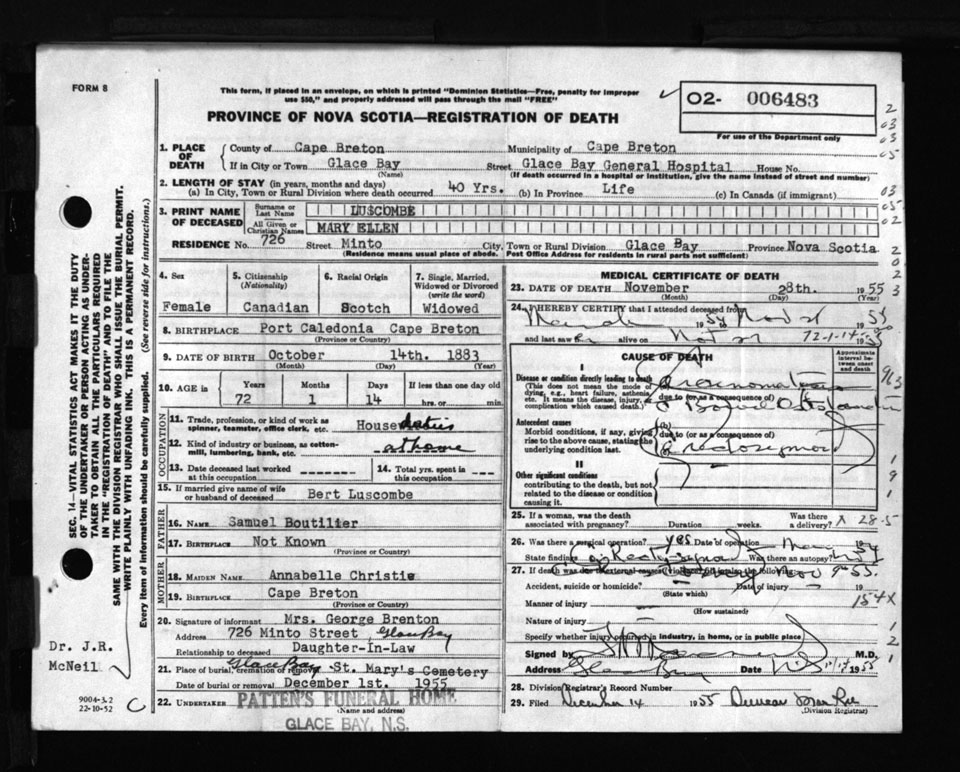 FORM 8
This form, if placed in an envelope, on which is printed "Dominion Statistics—Free, penalty for improper
use $50," and properly addressed will pass through the mail "FREE"
PROVINCE OF NOVA SCOTIA—REGISTRATION OF DEATH
O2- 006483
For use of the Department only
1. PLACE OF DEATH
County of Cape Breton Municipality of Cape Breton
If in City or Town Glace Bay Street Glace Bay General Hospital House No.
(Name) (If death occurred in a hospital or institution, give the name instead of street and number)
2. LENGTH OF STAY (in years, months and days)
(a) In City, Town or Rural Division where death occurred 40 Yrs. (b) In Province Life (c) In Canada (if immigrant)
3. PRINT NAME OF DECEASED
Surname or Last Name LUSCOMBE
All Given or Christian Names MARY ELLEN
RESIDENCE No. 726 Street Minto City, Town or Rural Division Glace Bay Province Nova Scotia
(Residence means usual place of abode. Post Office Address for residents in rural parts not sufficient)
4. Sex
Female
5. Citizenship
(Nationality)
Canadian
6. Racial Origin
Scotch
7. Single, Married,
Widowed or Divorced
(write the word)
Widowed
8. BIRTHPLACE Port Caledonia Cape Breton
(Province or Country)
9. DATE OF BIRTH October 14th. 1883
(Month) (Day) (Year)
10. AGE in
Years Months Days If less than one day old
72 1 14 hrs. or min.
OCCUPATION
11. Trade, profession, or kind of work as
spinner, teamster, office clerk, etc. House duties
12. Kind of industry or business, as cotten-
mill, lumbering, bank, etc. at home
13. Date deceased last worked
at this occupation
14. Total yrs. spent in
this occupation
15. If married give name of wife
or husband of deceased Bert Luscombe
FATHER
16. NAME Samuel Boutilier
17. BIRTHPLACE Not Known
(Province or Country)
MOTHER
18. MAIDEN NAME Annabelle Christie
19. BIRTHPLACE Cape Breton
(Province or Country)
20. Signature of informant Mrs. George Brenton
Address 726 Minto Street, Glace Bay
Relationship to deceased Daughter-In-Law
21. Place of burial, cremation or removal Glace Bay St. Mary's Cemetery
Date of burial or removal December 1st. 1955
22. UNDERTAKER PATTEN'S FUNERAL HOME
(Name and address)
GLACE BAY, N.S.
MEDICAL CERTIFICATE OF DEATH
23. DATE OF DEATH November 28th. 1955
(Month) (Day) (Year)
24. I HEREBY CERTIFY that I attended deceased from
and last saw h alive on
72-1-14
CAUSE OF DEATH
Approximate interval between onset and death
I
Disease or condition directly leading to death
(This does not mean the mode of
dying, e.g., heart failure, asthenia,
etc. It means the disease, injury, or
complication which caused death.)
due to (or as a consequence of)
Antecedent causes
Morbid conditions, if any, giving
rise to the above cause, stating the
underlying condition last.
(b)
due to (or as a consequence of)
II
Other significant conditions
contributing to the death, but not
related to the disease or condition
causing it.
25. If a woman, was the death
associated with pregnancy? Duration weeks. Was there
a delivery?
26. Was there a surgical operation? yes Date of operation
State findings Was there an autopsy?
27. If death was due to external causes (violence) fill in also the following
Accident, suicide or homicide? Date of injury 19
(State which)
Manner of injury
(How sustained)
Nature of injury
Specify whether injury occurred in industry, in home, or in public place
Signed by M.D.
Address Glace Bay Date 1955
28. Division Registrar's Record Number
29. Filed December 14 1955 Duncan
(Division Registrar)
SEC. 14—VITAL STATISTICS ACT MAKES IT THE DUTY
OF THE UNDERTAKER OR PERSON ACTING AS UNDER-
TAKER TO OBTAIN ALL THE PARTICULARS REQUIRED
IN THE "REGISTRATION OF DEATH" AND TO FILE THE
SAME WITH THE DIVISION REGISTRAR WHO SHALL ISSUE THE BURIAL PERMIT.
WRITE PLAINLY WITH UNFADING INK. THIS IS A PERMANENT RECORD.
Every item of information should be carefully supplied. (See reverse side for instructions.)
Dr. J.R.
McNeil
9004-3.2
22-10-52
C